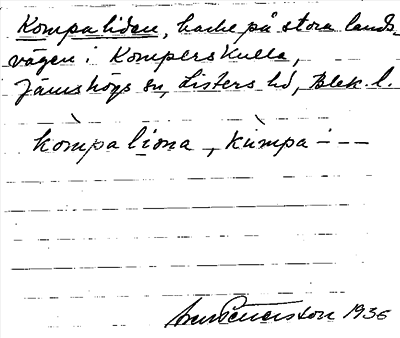 Kompaliden, backe på stora lands-
vägen i Komperskulla,
Jämshögs sn, Listers hd, Blek. l.
kòmpaliona, kùmpa - - -
1936